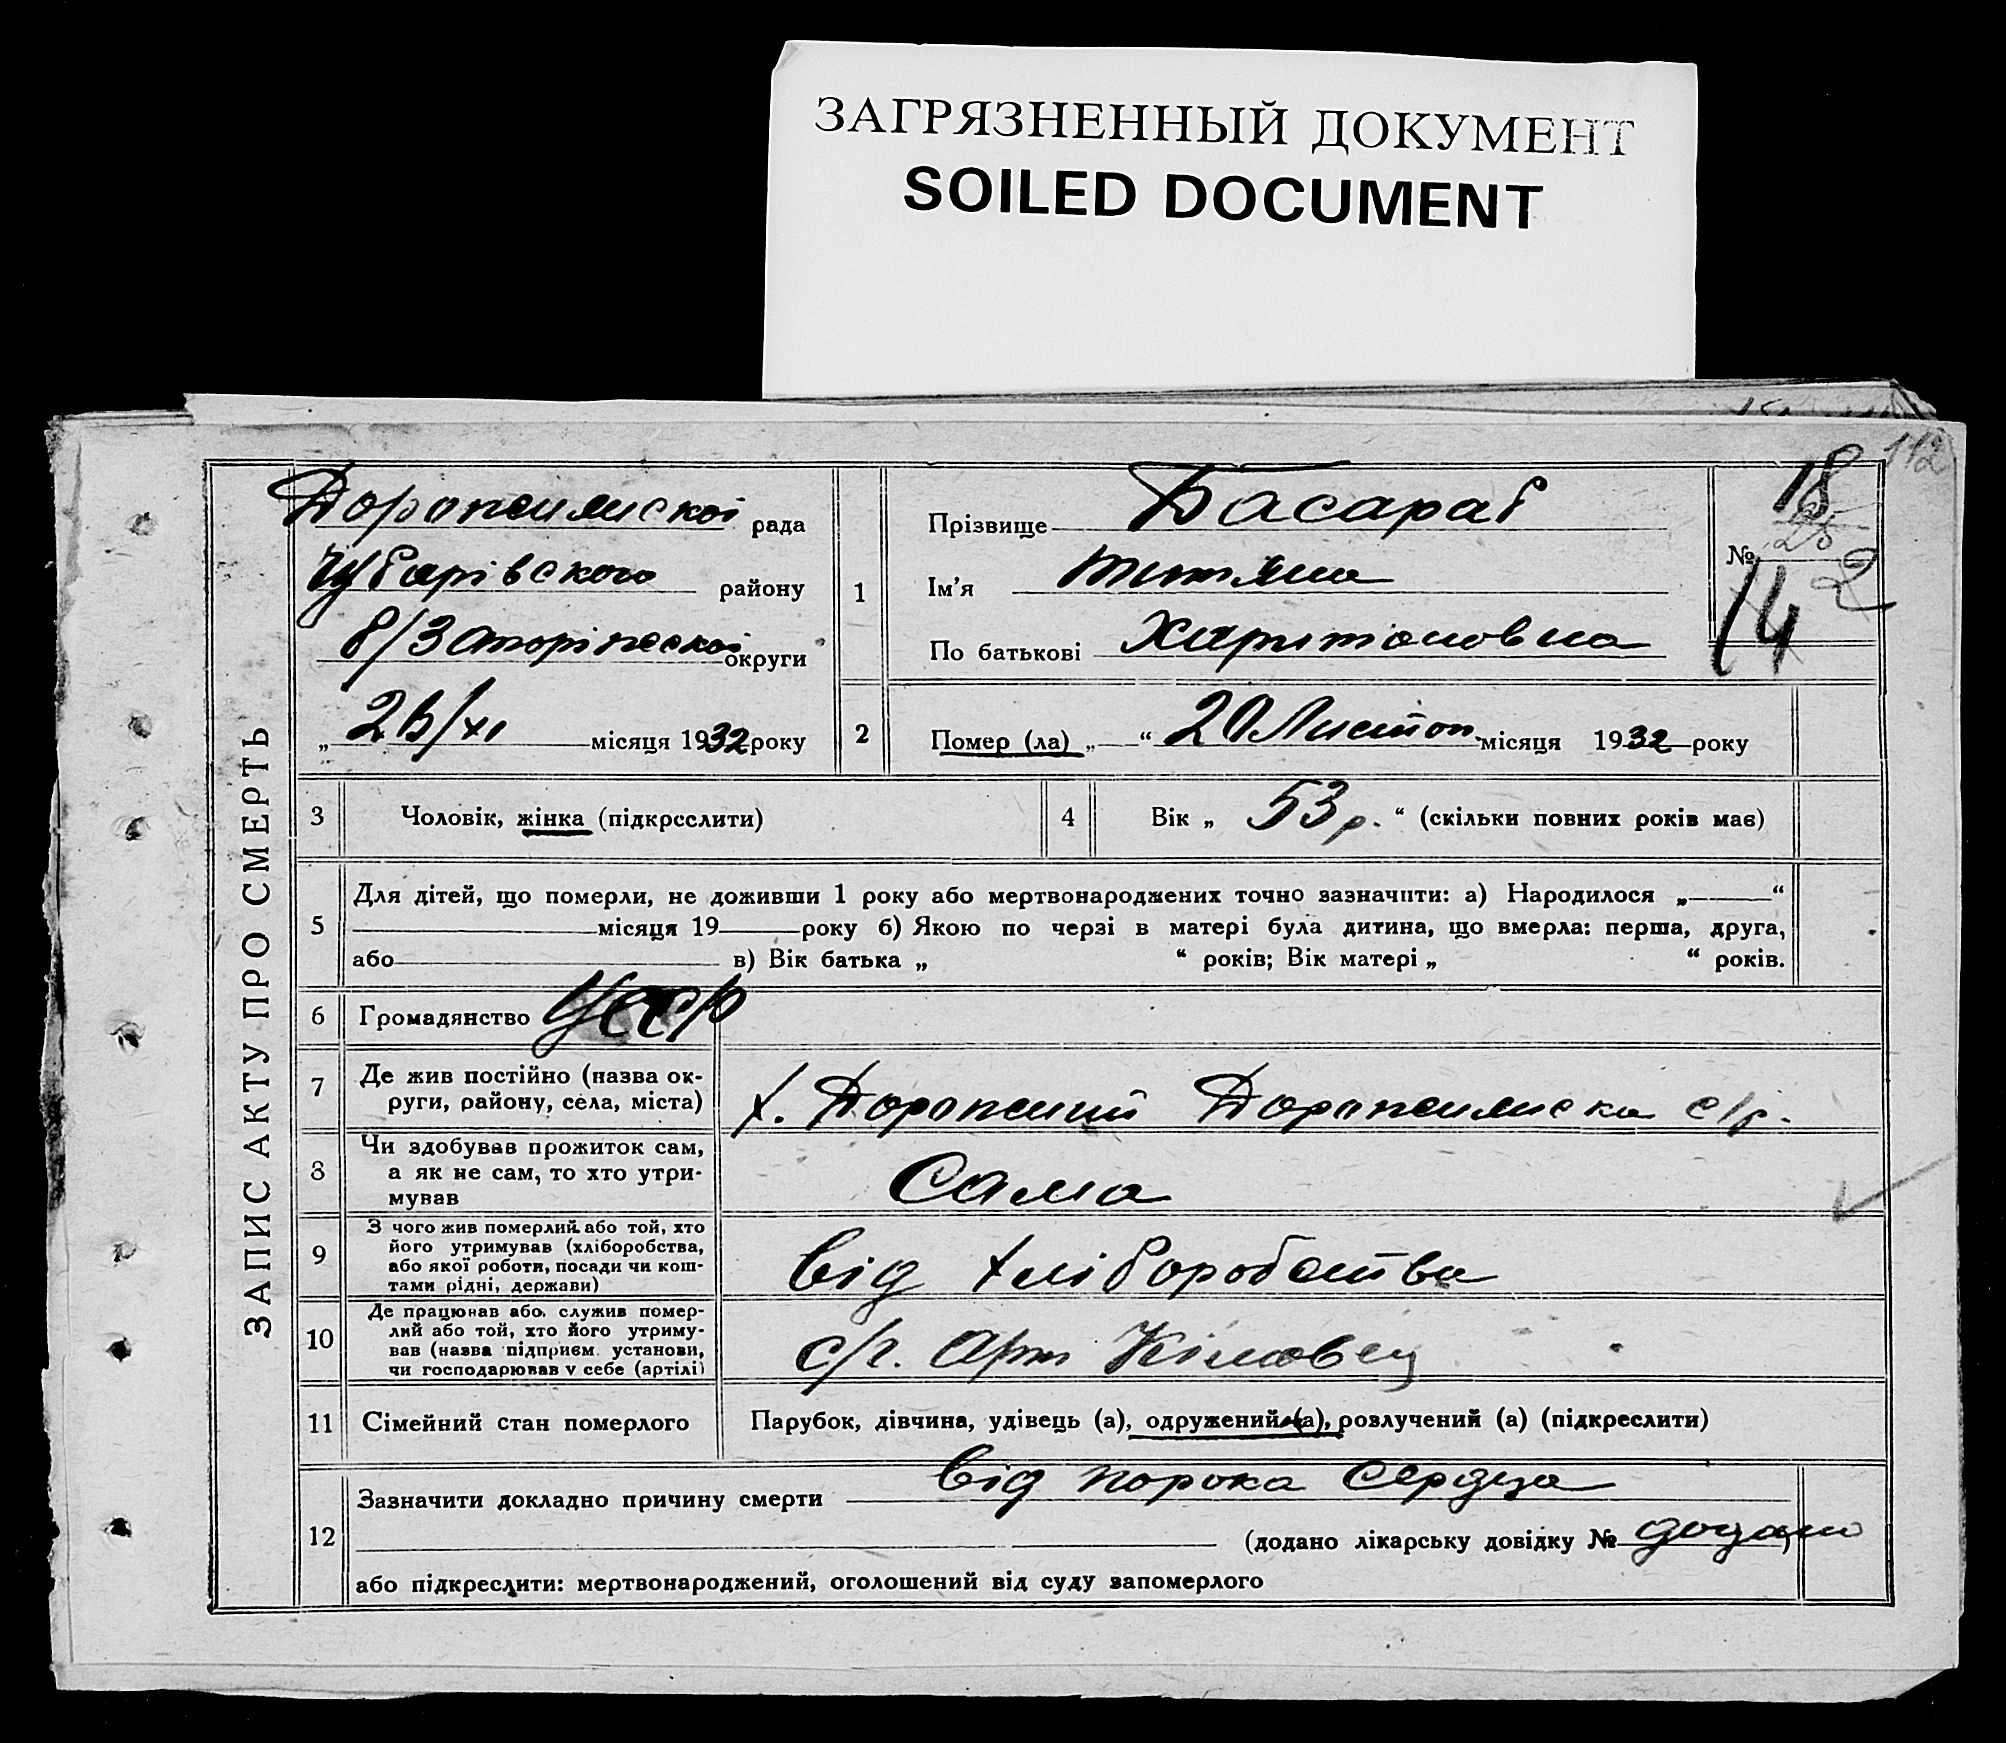 ЗАГРЯЗНЕННЫЙ ДОКУМЕНТ
SOILED DOCUMENT
112
ЗАПИС АКТУ ПРО СМЕРТЬ
рада
Чубарівського району
округи
„ /XI місяця 1932 року
1
Прізвище Басараб
Ім'я Титяна
По батькові Харитоновна
№
18
25
14 2
2
Помер (ла) „ “ 20 Листоп місяця 1932 року
3
Чоловік, жінка (підкреслити)
4
Вік „ 53 р. “ (скільки повних років має)
5
Для дітей, що померли, не доживши 1 року або мертвонароджених точно зазначити: а) Народилося „ “
місяця 19 року б) Якою по черзі в матері була дитина, що вмерла: перша, друга,
або в) Вік батька „ “ років; Вік матері „ “ років.
6
Громадянство УССР
7
Де жив постійно (назва ок-
руги, району, села, міста)
х. с/р.
8
Чи здобував прожиток сам,
а як не сам, то хто утри-
мував
Сама
9
З чого жив померлий або той, хто
його утримував (хліборобства,
або якої роботи, посади чи кош-
тами рідні, держави)
від хліборобства
10
Де працював або служив помер-
лий або той, хто його утриму-
вав (назва підприєм. установи,
чи господарював у себе (артілі)
с/г. Арт
11
Сімейний стан померлого
Парубок, дівчина, удівець (а), одружений (а), розлучений (а) (підкреслити)
12
Зазначити докладно причину смерти від порока сердца
(додано лікарську довідку № додано)
або підкреслити: мертвонароджений, оголошений від суду запомерлого